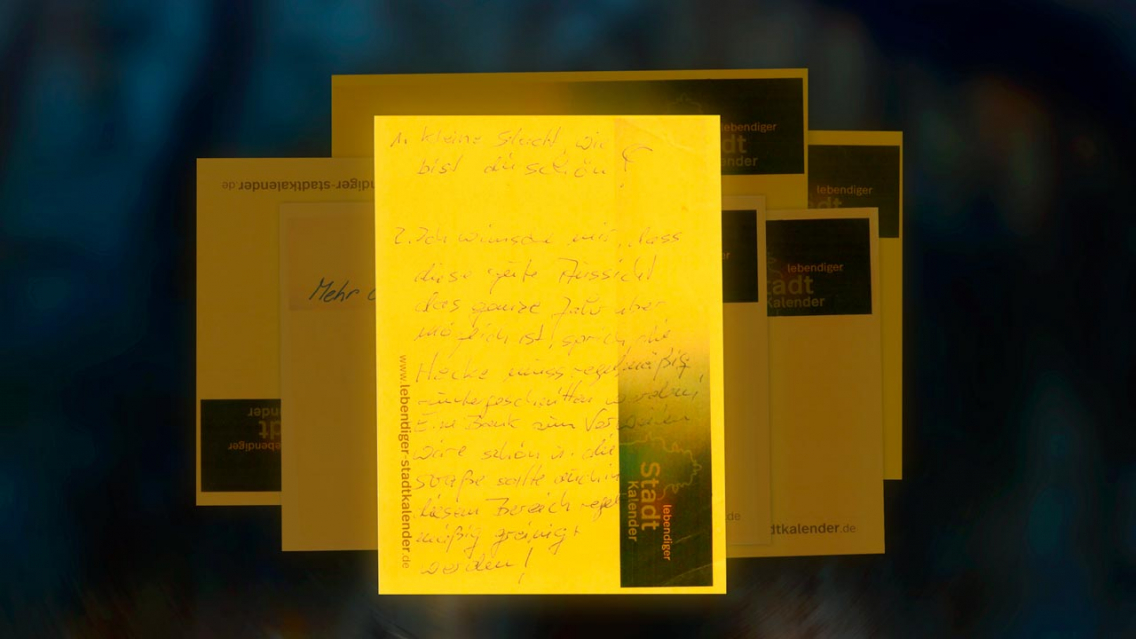 1. Kleine Stadt, wie
bist du schön!
2. Ich wünsche mir, dass
diese gute Aussicht
das ganze Jahr über
möglich ist, sprich die
Hecke muss regelmäßig
runtergeschnitten werden!
Eine Bank zum Verweilen
wäre schön u. die
Straße sollte auch in
diesem Bereich regel
mäßig gereinigt
werden!
www.lebendiger-stadtkalender.de
lebendiger
Stadt
Kalender
Mehr
lebendiger
dt
ender
lebendiger
adt
lebendiger
tadt
Kalender
dtkalender.de
de
ndiger-stadtkalender.de
ebendiger
dt
ender